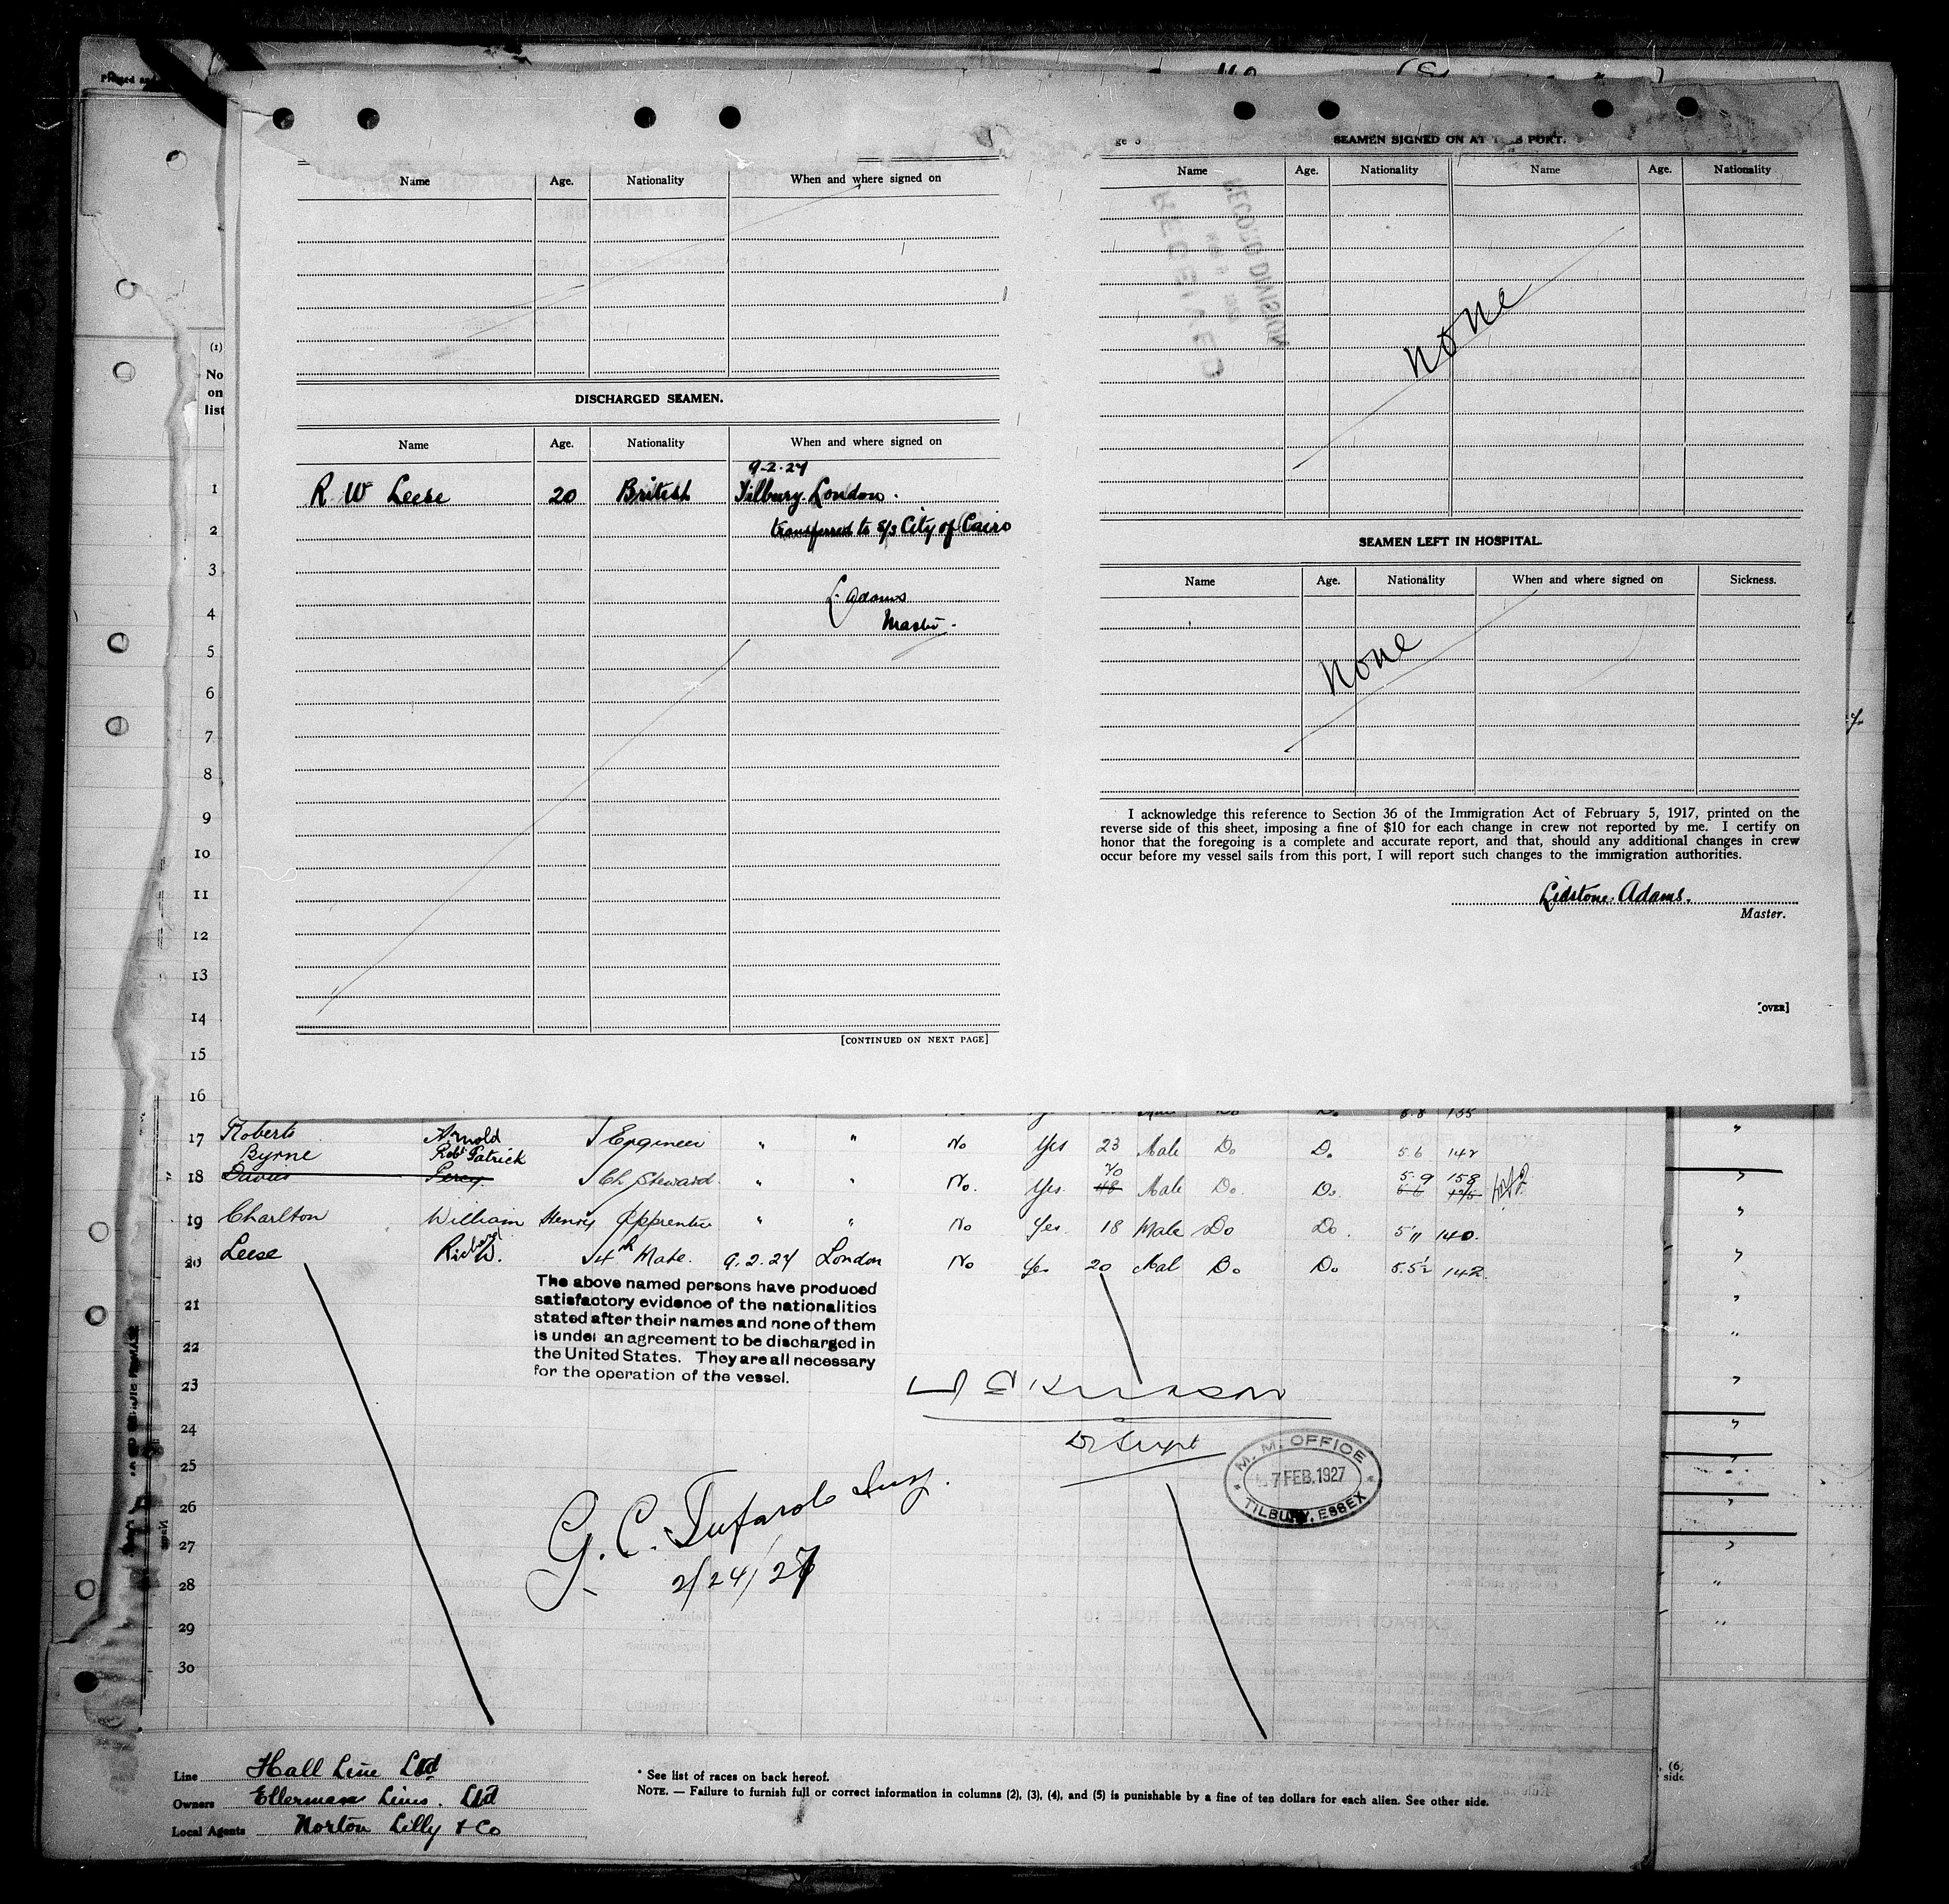 SEAMEN SIGNED ON AT PORT.
Name Age. Nationality When and where signed on
DISCHARGED SEAMEN.
Name Age. Nationality When and where signed on
9-2-27
R W Leese 20 British Tilbury London.
transferred to S/S City of Cairo
L. Adams
Master.
[CONTINUED ON NEXT PAGE]
Name Age. Nationality Name Age. Nationality
RECORD DIVISION
RECEIVED
none
SEAMEN LEFT IN HOSPITAL.
Name Age. Nationality When and where signed on Sickness.
none
I acknowledge this reference to Section 36 of the Immigration Act of February 5, 1917, printed on the
reverse side of this sheet, imposing a fine of $10 for each change in crew not reported by me. I certify on
honor that the foregoing is a complete and accurate report, and that, should any additional changes in crew
occur before my vessel sails from this port, I will report such changes to the immigration authorities.
Lidstone Adams.
Master.
[OVER]
(1)
No
on
list
1
2
3
4
5
6
7
8
9
10
11
12
13
14
15
16
17 Roberts Arnold J Engineer " " No Yes 23 Male Do Do. 5 6 142
Byrne Robt Patrick 40 5.9 158
18 Davies Percy Ch Steward " " No. Yes 48 Male Do. Do.
19 Charlton William Henry Apprentice " " No Yes. 18 Male Do Do. 5'11 140.
20 Leese Richard W. 4th Mate. 9.2.27 London No Yes 20 Mal Do Do 5.5½ 142.
The above named persons have produced
satisfactory evidence of the nationalities
stated after their names and none of them
is under an agreement to be discharged in
the United States. They are all necessary
for the operation of the vessel.
21
22
23
24
25
26
27
28
29
30
Supt
M. M. OFFICE
7 FEB. 1927
TILBURY, ESSEX
G. C. Tufarolo Insp.
2/24/27
Line Hall Line Ltd
Owners Ellerman Lines. Ltd
Local Agents Norton Lilly & Co
* See list of races on back hereof.
NOTE. — Failure to furnish full or correct information in columns (2), (3), (4), and (5) is punishable by a fine of ten dollars for each alien. See other side.